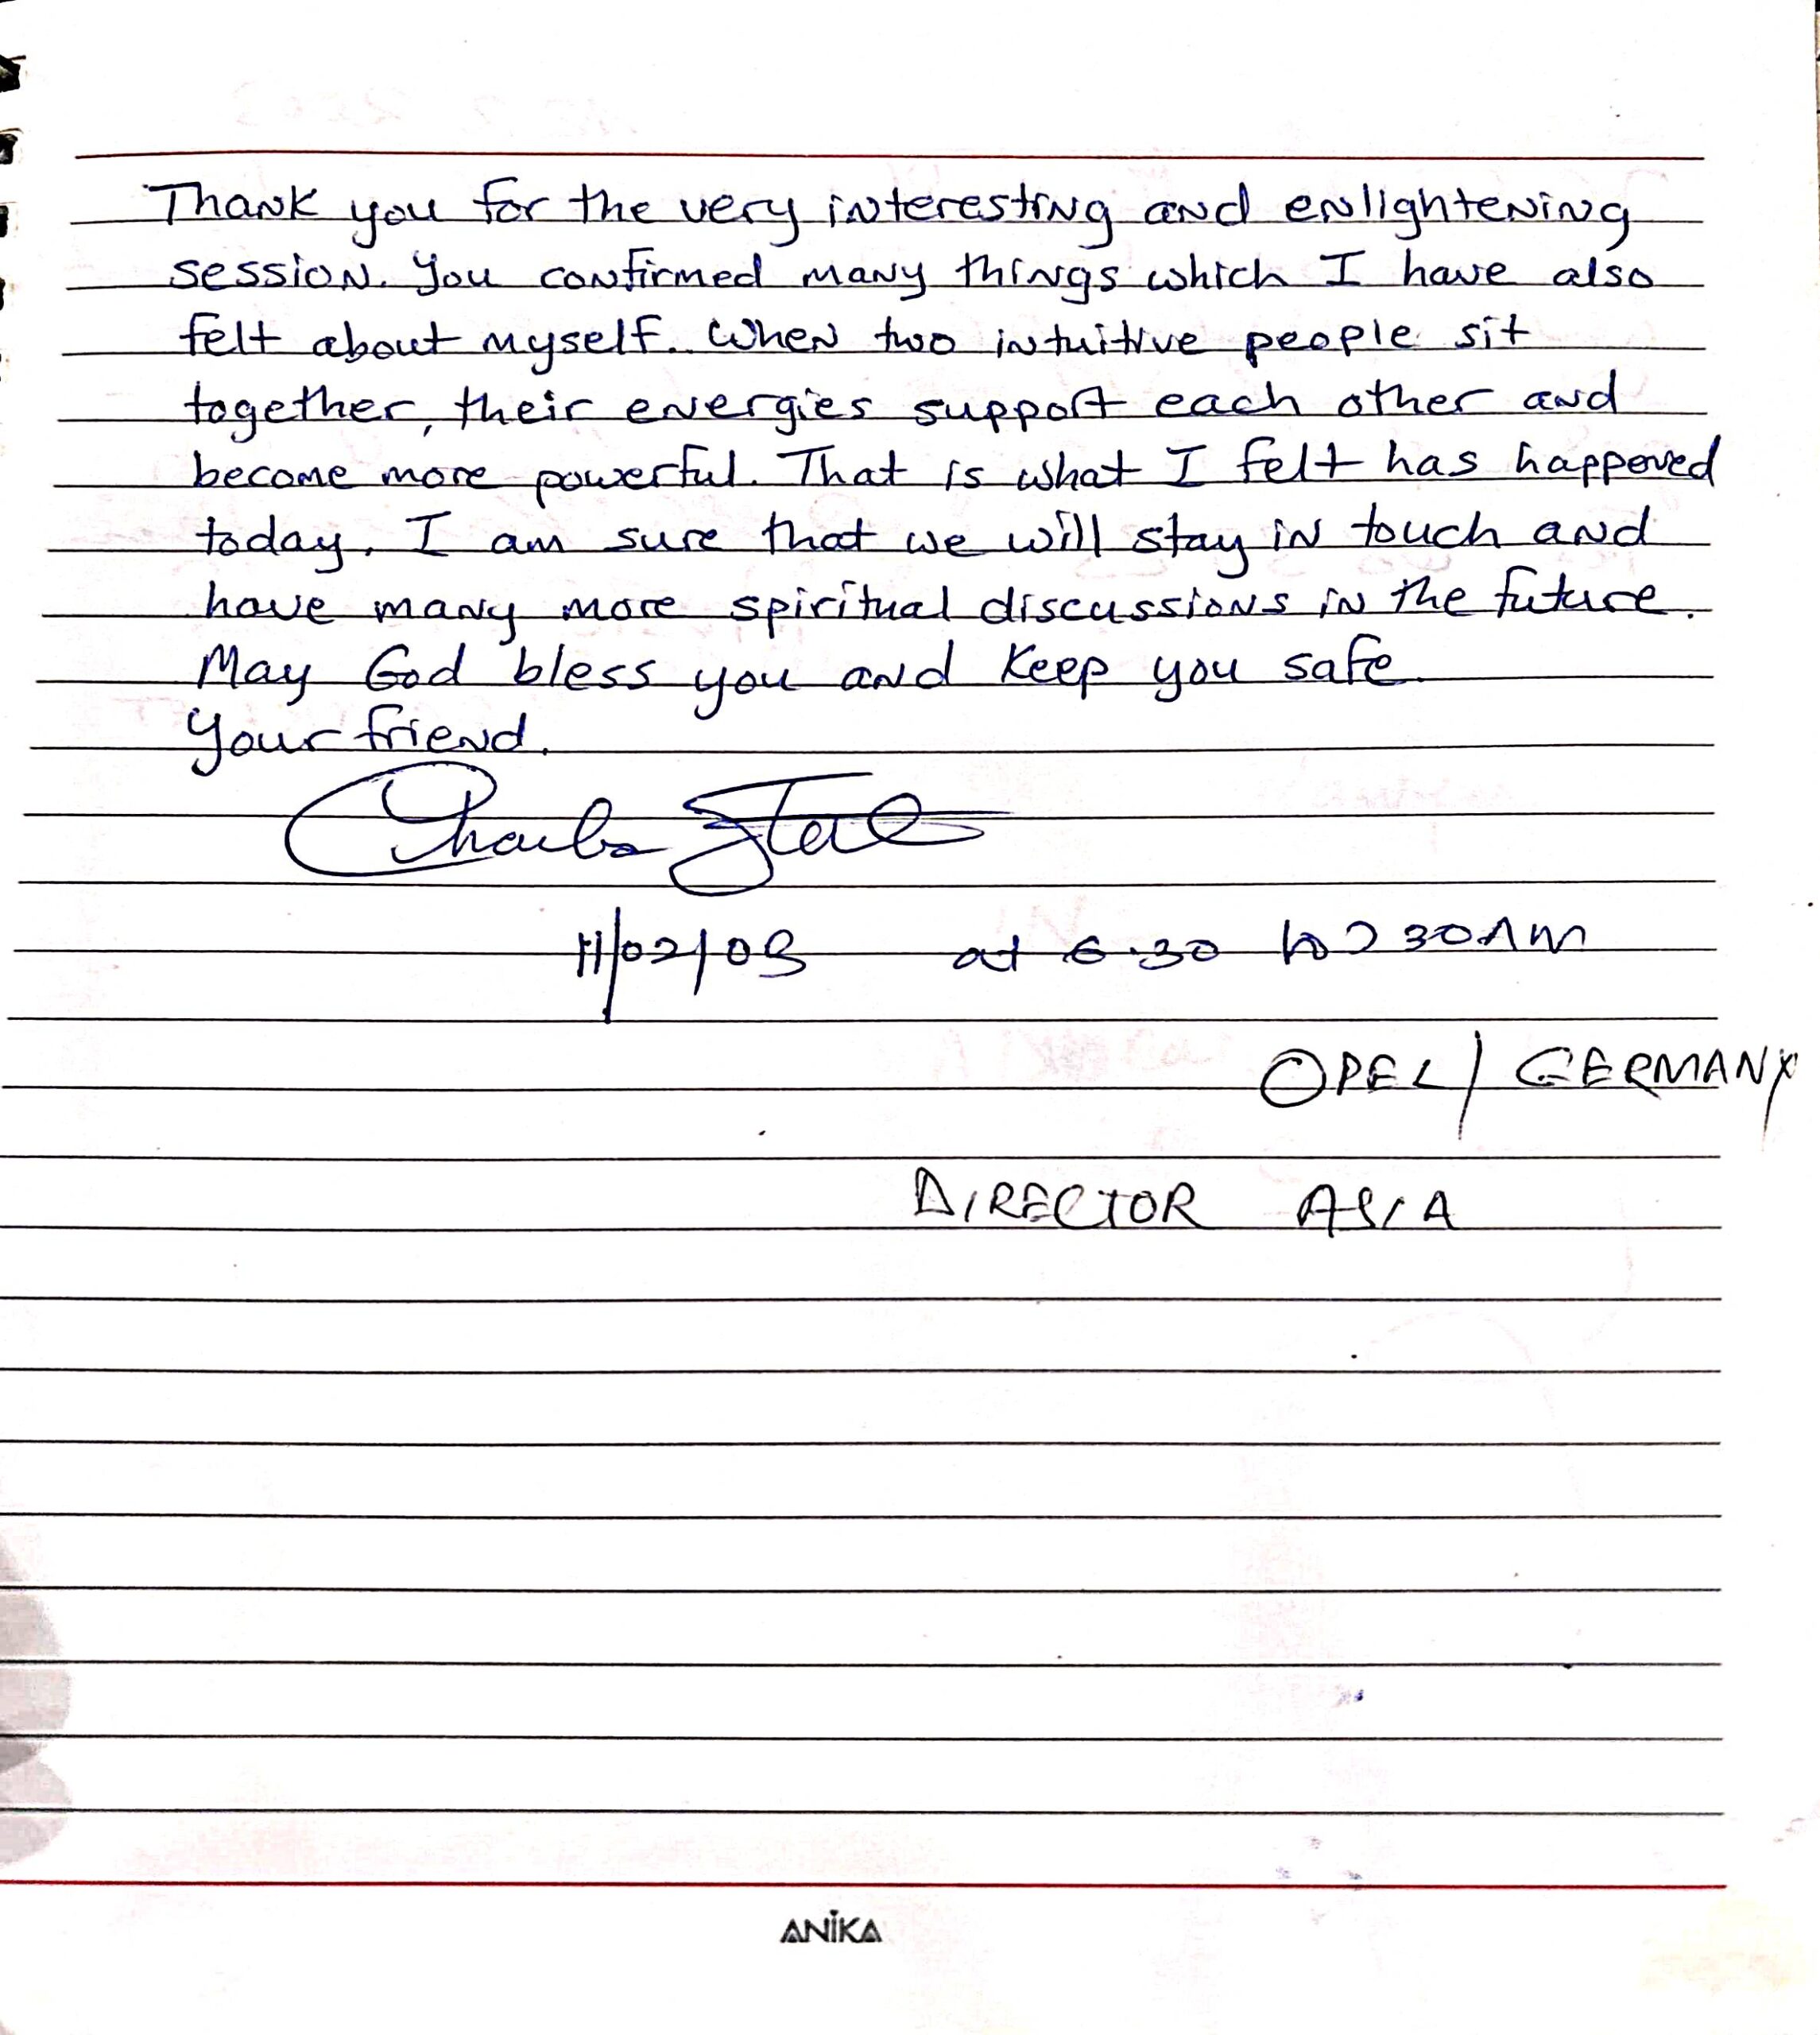 Thank you for the very interesting and enlightening
session. You confirmed many things which I have also
felt about myself. When two intuitive people sit
together, their energies support each other and
become more powerful. That is what I felt has happened
today. I am sure that we will stay in touch and
have many more spiritual discussions in the future.
May God bless you and keep you safe
Your friend.
Charles
11/02/03 at 6.30 to 7 30 AM
OPEL / GERMANY
DIRECTOR ASIA
ANIKA